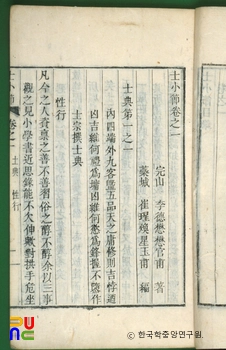 士小節卷之一
完山 李德懋懋官甫 著
藁城 崔瑆煥星玉甫 編
士典第一之一
內四端外九容曁五品天之庸修則吉悖迺
凶吉維何禮爲端凶維何慾爲鋒握不墮作
士宗撰士典
性行
凡今之人資稟之善不善習俗之醇不醇余以三事
觀之見小學書近思錄能不欠伸歟對拱手危坐
士小節 卷之一 士典 性行
한국학중앙연구원